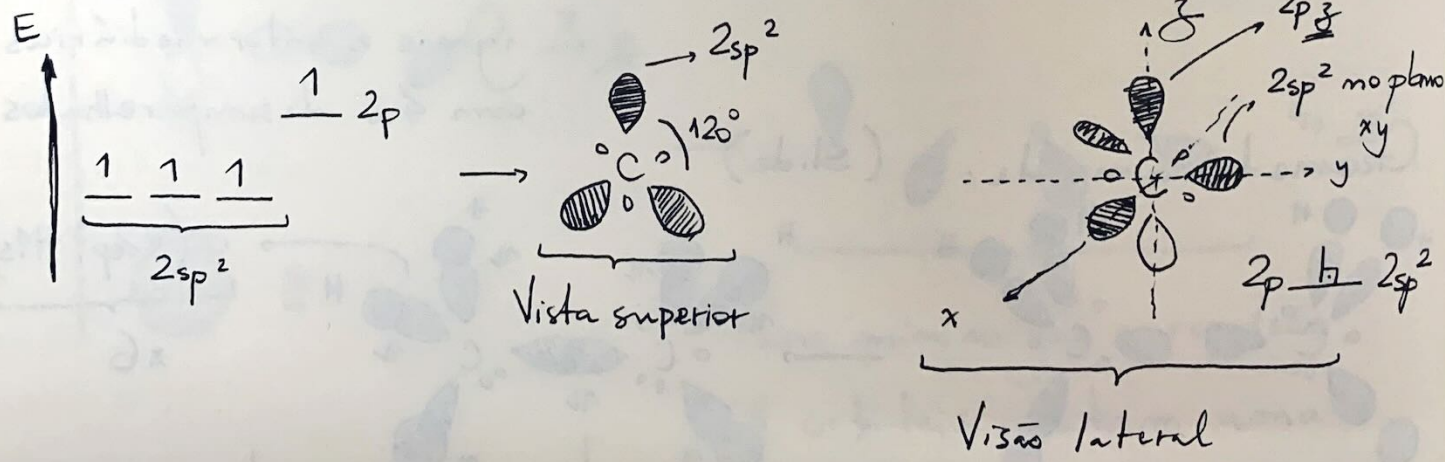 E
1 2p
1 1 1
2sp²
2sp²
120°
C
Vista superior
z
2pz
2sp² no plano
xy
C
y
x
2p 2sp²
Visão lateral